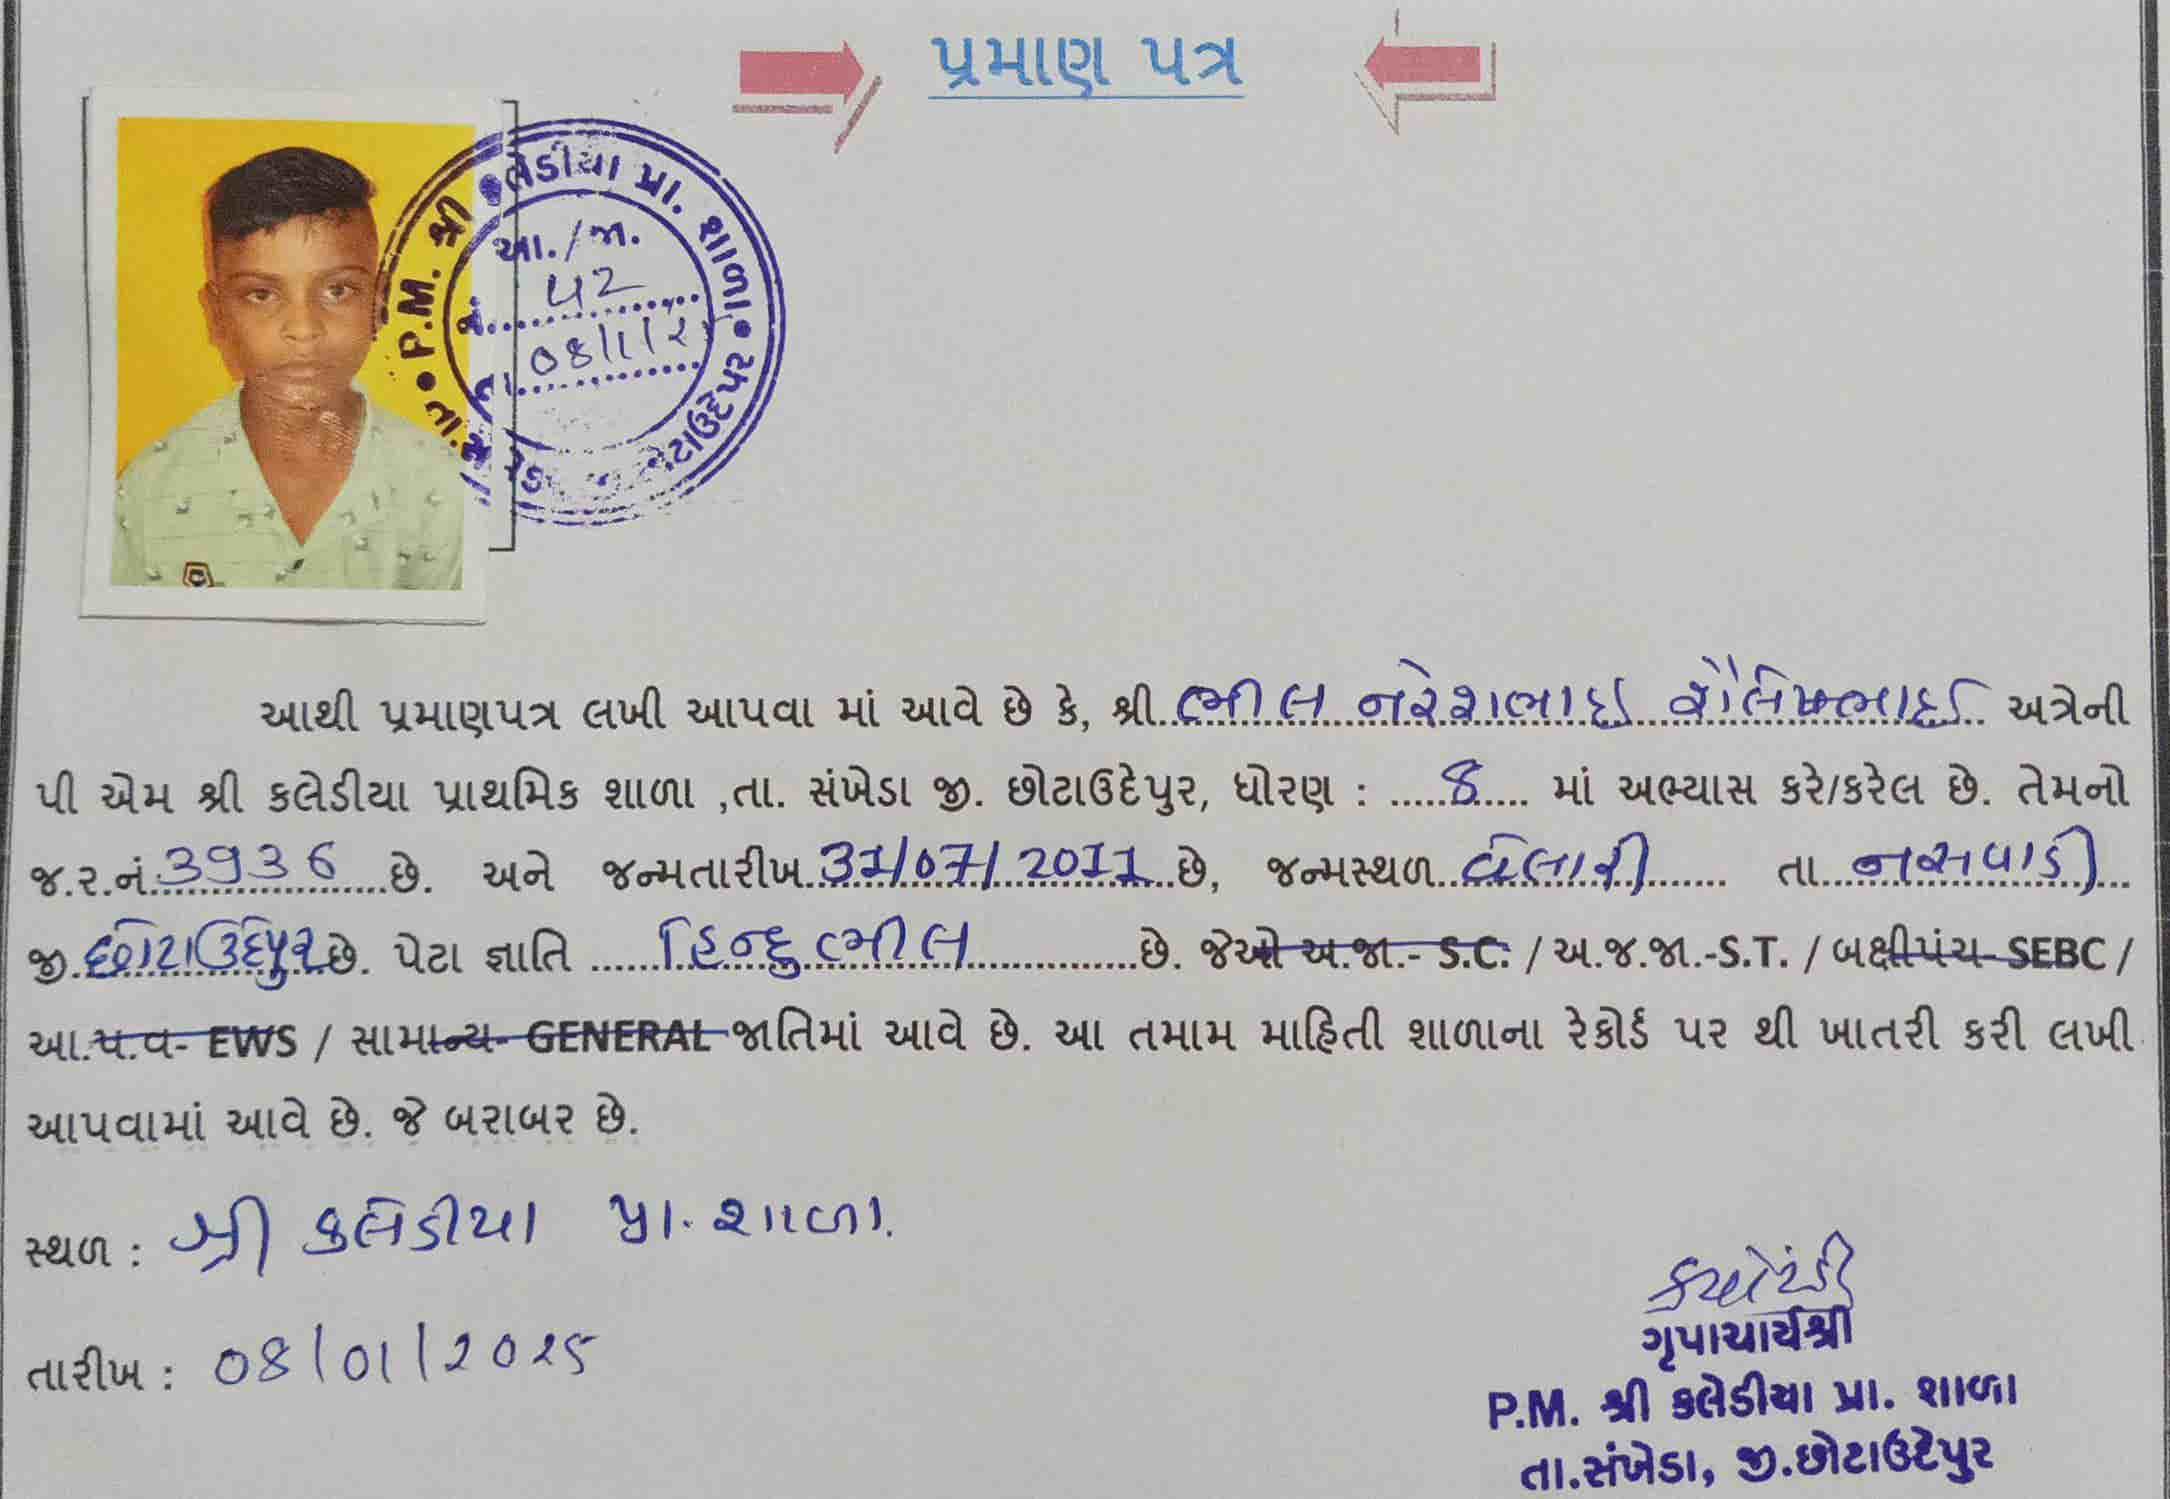 પ્રમાણ પત્ર
P.M. શ્રી કલેડીયા પ્રા. શાળા
આ./જા.
નં. 52
તા. 08/1/25
આથી પ્રમાણપત્ર લખી આપવા માં આવે છે કે, શ્રી ભીલ નરેશભાઇ શૈલેષભાઇ અત્રેની
પી એમ શ્રી કલેડીયા પ્રાથમિક શાળા ,તા. સંખેડા જી. છોટાઉદેપુર, ધોરણ : 8 માં અભ્યાસ કરે/કરેલ છે. તેમનો
જ.ર.નં. 3936 છે. અને જન્મતારીખ 31/07/2011 છે, જન્મસ્થળ વેલારી તા. નસવાડી
જી. છોટાઉદેપુર છે. પેટા જ્ઞાતિ હિન્દુ ભીલ છે. જેઓ અ.જા.- S.C. / અ.જ.જા.-S.T. / બક્ષીપંચ- SEBC /
આ.પ.વ- EWS / સામાન્ય- GENERAL જાતિમાં આવે છે. આ તમામ માહિતી શાળાના રેકોર્ડ પર થી ખાતરી કરી લખી
આપવામાં આવે છે. જે બરાબર છે.
સ્થળ : શ્રી કલેડીયા પ્રા. શાળા.
તારીખ : 08/01/2025
P.M. શ્રી કલેડીયા પ્રા. શાળા
તા.સંખેડા, જી.છોટાઉદેપુર